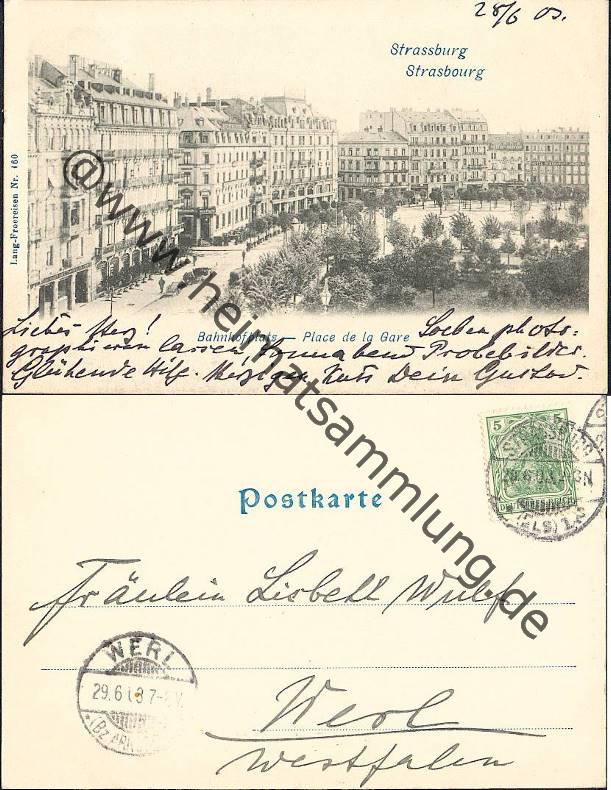 28/6 03.
Strassburg
Strasbourg
Lang-Froereisen Nr. 460
Bahnhofplatz — Place de la Gare
Liebes Herz! Soeben photo-
graphieren lassen, Sonnabend Probebilder.
Glühende Hitze. Herzigen Kuss Dein Gustav.
@www.heimatsammlung.de
5 5
DEUTSCHES REICH
STRASSBURG
29.6.03. N
(ELS) 1.
Postkarte
Fräulein Lisbeth Wulf
WERL
29.6.03 7-8V.
(Bz. ARNSBERG)
Werl
Westfalen